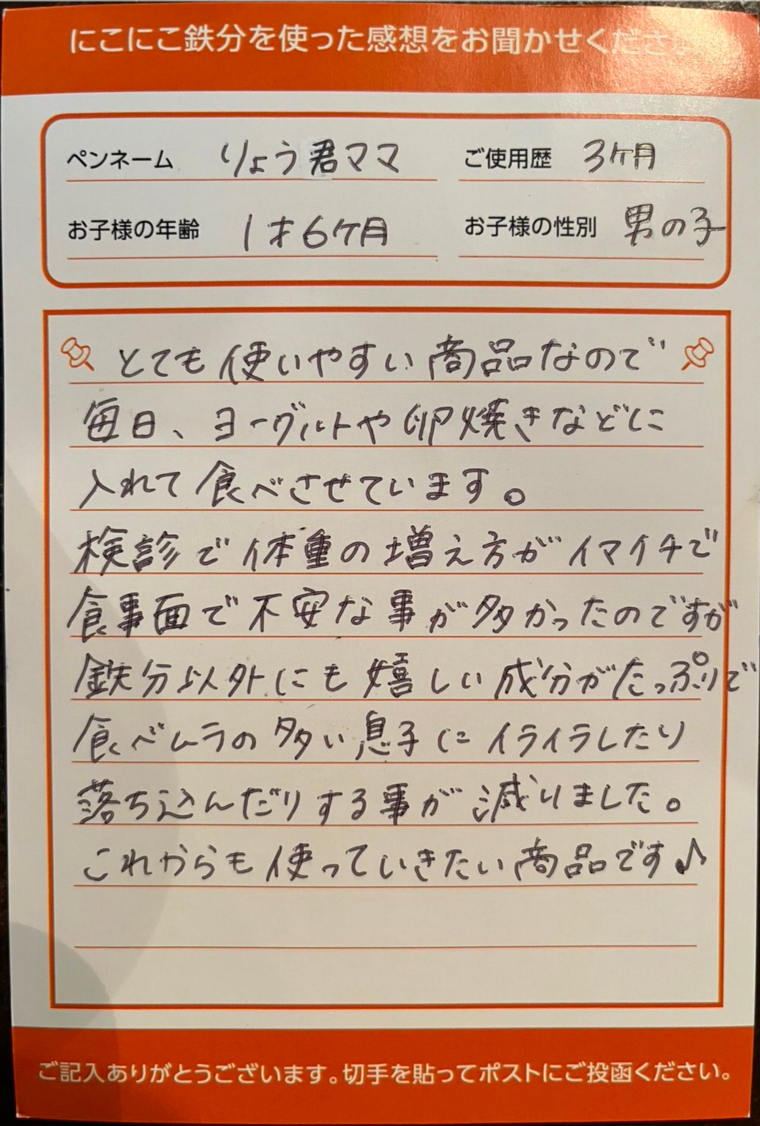 にこにこ鉄分を使った感想をお聞かせくださ
ペンネーム りょう君ママ ご使用歴 3ヶ月
お子様の年齢 1才6ヶ月 お子様の性別 男の子
とても使いやすい商品なので
毎日、ヨーグルトや卵焼きなどに
入れて食べさせています。
検診で体重の増え方がイマイチで
食事面で不安な事が多かったのですが
鉄分以外にも嬉しい成分がたっぷりで
食べムラの多い息子にイライラしたり
落ち込んだりする事が減りました。
これからも使っていきたい商品です♪
ご記入ありがとうございます。切手を貼ってポストにご投函ください。